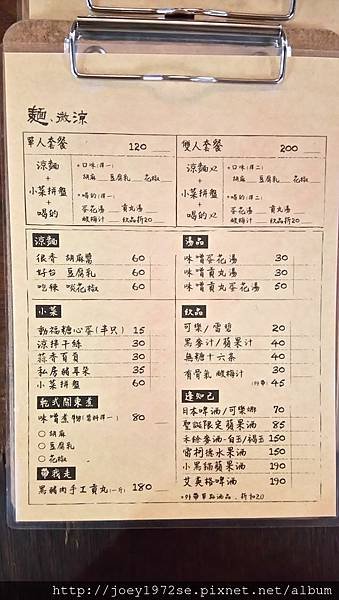 麵、微涼
單人套餐 120
涼麵
+
小菜拼盤
+
喝的
口味(擇一)
胡麻 豆腐乳 花椒
喝的(擇一)
蛋花湯 貢丸湯
酸梅汁 飲品折20
雙人套餐 200
涼麵x2
+
小菜拼盤
+
喝的x2
口味(擇二)
胡麻 豆腐乳 花椒
喝的(擇二)
蛋花湯 貢丸湯
酸梅汁 飲品折20
涼麵
很香 胡麻醬 60
好台 豆腐乳 60
吃辣 啖花椒 60
小菜
動福糖心蛋(半只) 15
涼拌干絲 30
蒜香貢貢 30
私房豬耳朵 35
小菜拼盤 60
乾式關東煮
味噌煮物(醬料擇一) 80
胡麻
豆腐乳
花椒
帶我走
黑豬肉手工貢丸(一斤) 180
湯品
味噌蛋花湯 30
味噌貢丸湯 30
味噌貢丸蛋花湯 50
飲品
可樂/雪碧 20
黑麥汁/蘋果汁 40
無糖十六茶 40
有骨氣 酸梅汁 30
(外帶) 45
逢知己
日本啤酒/可樂娜 70
聖誕限定蘋果酒 85
禾餘麥酒-白玉/褐玉 150
雷利德水果酒 150
小黑貓蘋果酒 190
艾莫格啤酒 190
外帶單點酒品、折扣20
http://joey1972se.pixnet.net/album